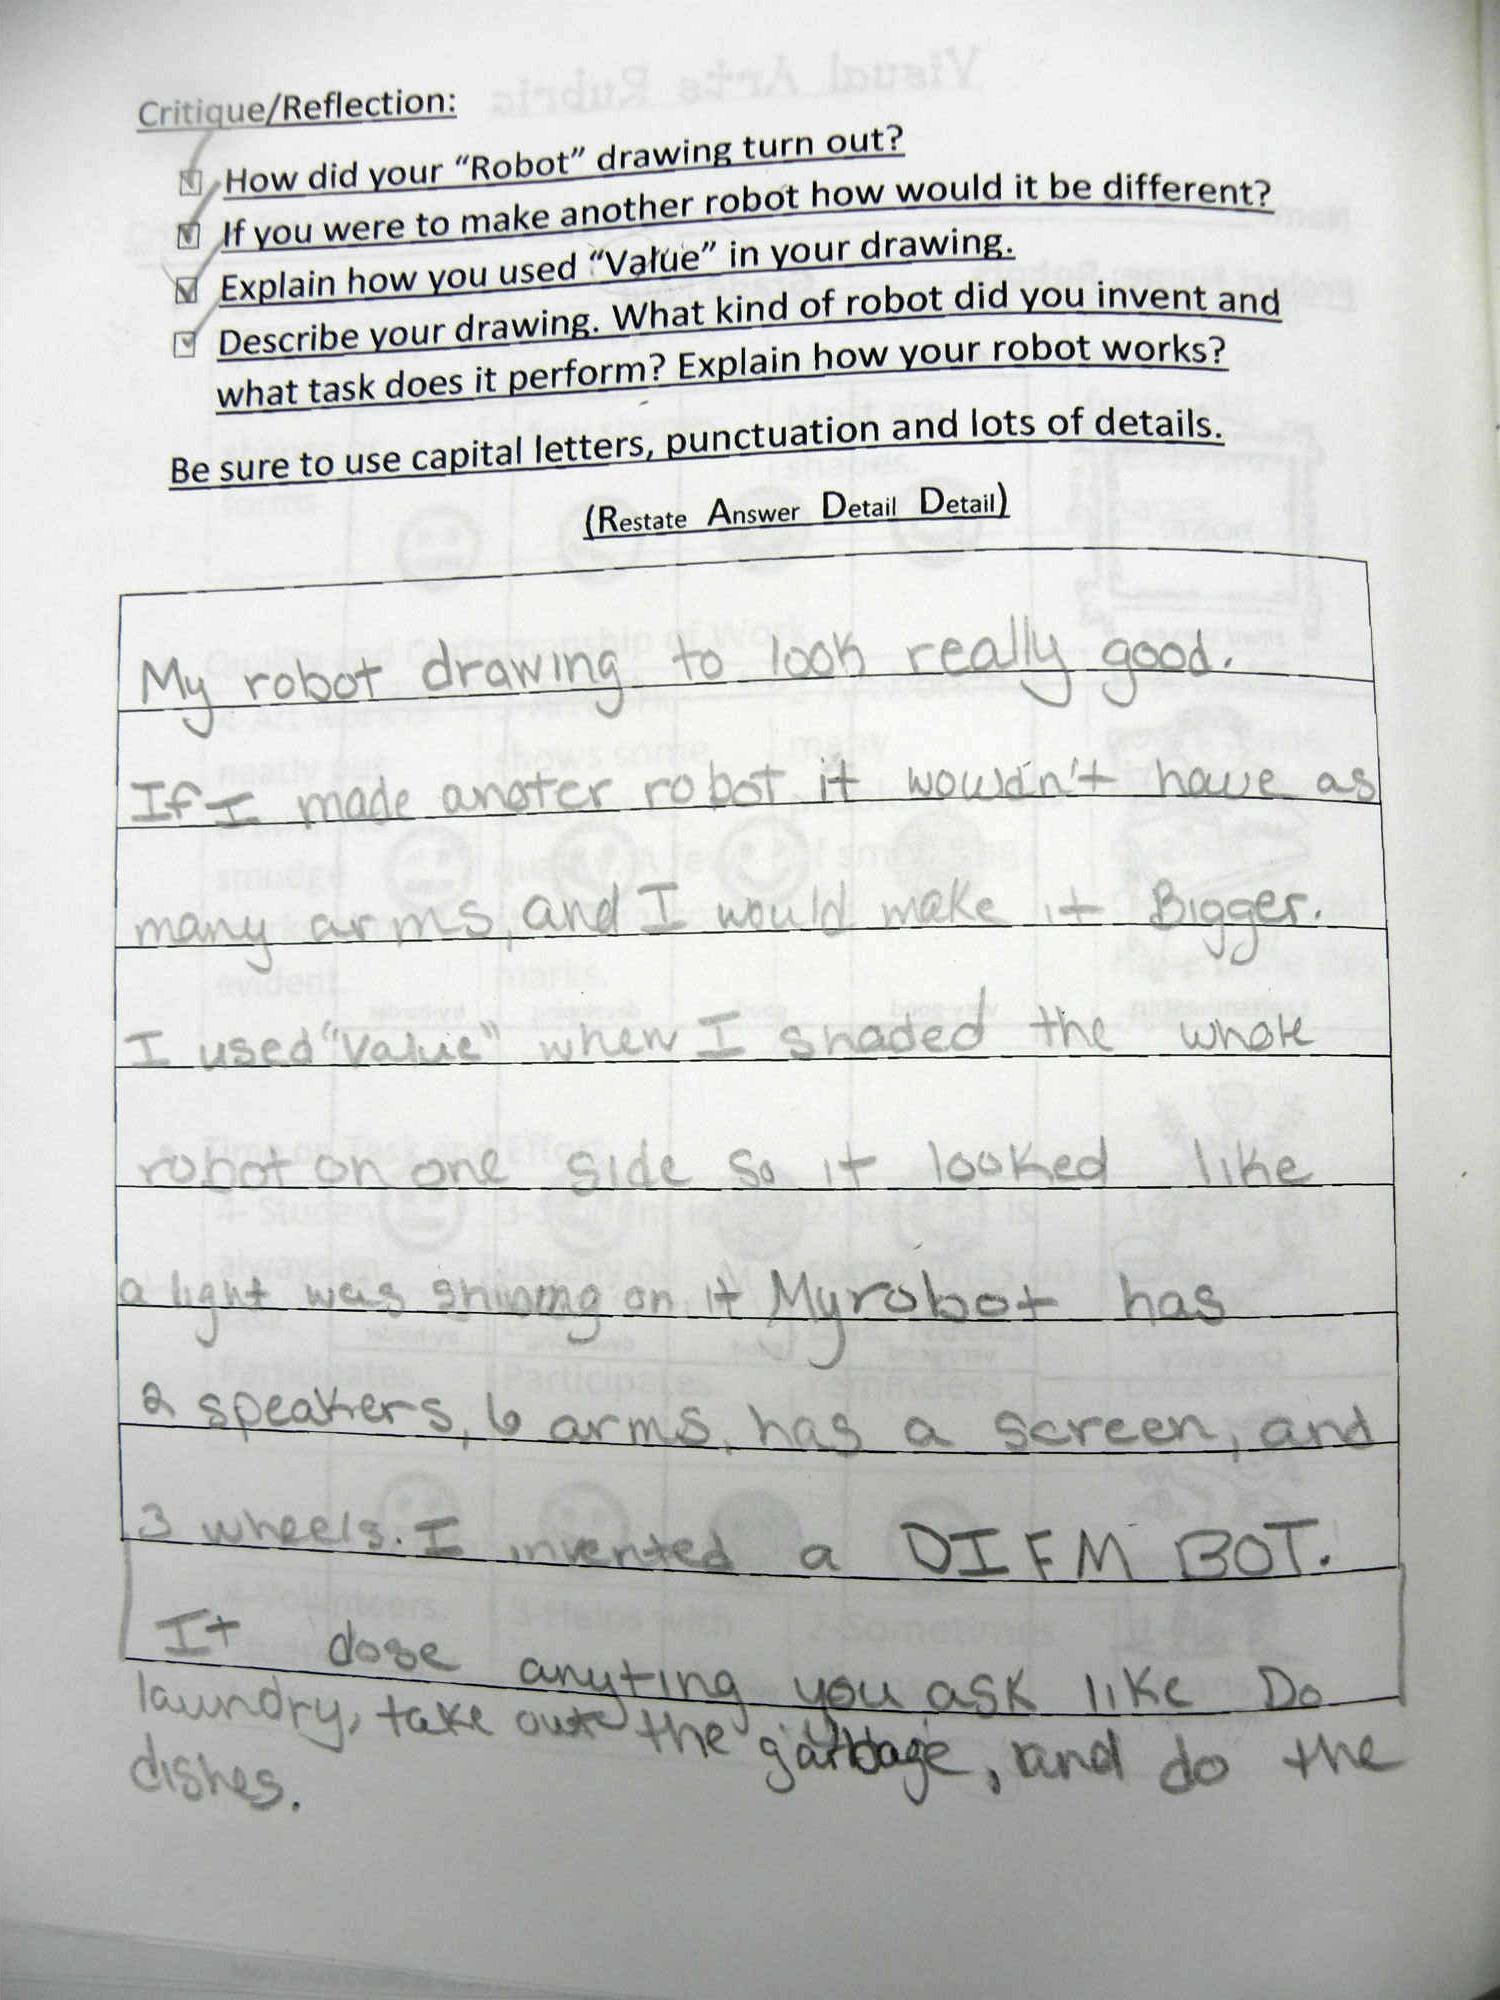 Critique/Reflection:
How did your "Robot" drawing turn out?
If you were to make another robot how would it be different?
Explain how you used "Value" in your drawing.
Describe your drawing. What kind of robot did you invent and
what task does it perform? Explain how your robot works?
Be sure to use capital letters, punctuation and lots of details.
(Restate Answer Detail Detail)
My robot drawing to look really good.
If I made anoter robot it wouldn't have as
many arms, and I would make it Bigger.
I used "Value" when I shaded the whole
robot on one side so it looked like
a light was shining on it My robot has
2 speakers, 6 arms, has a screen, and
3 wheels. I invented a DIFM BOT.
It dose anyting you ask like Do
laundry, take out the garbage, and do the
dishes.